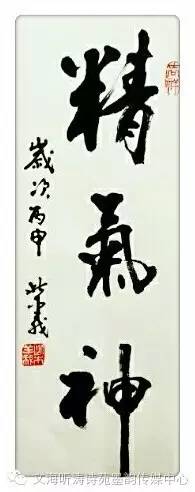 精氣神
歲次丙申
文海听涛诗苑墨韵传媒中心